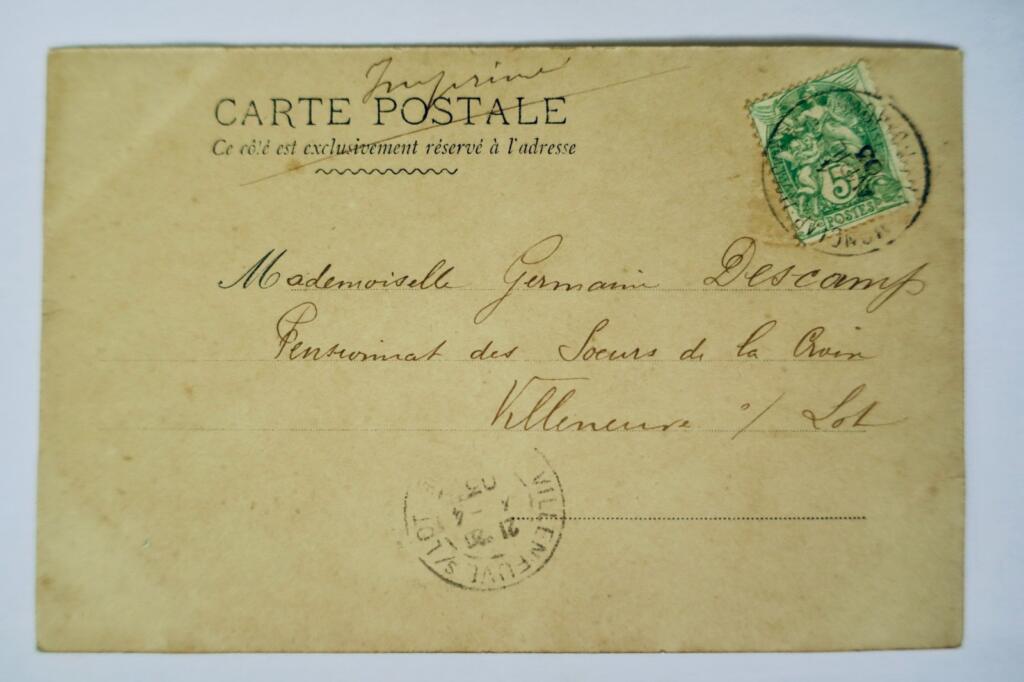 Imprimé
CARTE POSTALE
Ce côté est exclusivement réservé à l'adresse
5c
POSTES
03
Mademoiselle Germaine Descamp
Pensionnat des Soeurs de la Croix
Villeneuve s/ Lot
VILLENEUVE S/LOT
21 - 4
03